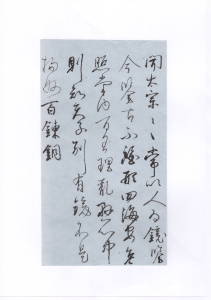 聞太宗〻常以人為鏡鑒
今鑒古不鑒形四海安危
照掌内百王理亂懸心中
則知天子別有鏡不是
揚州百鍊銅